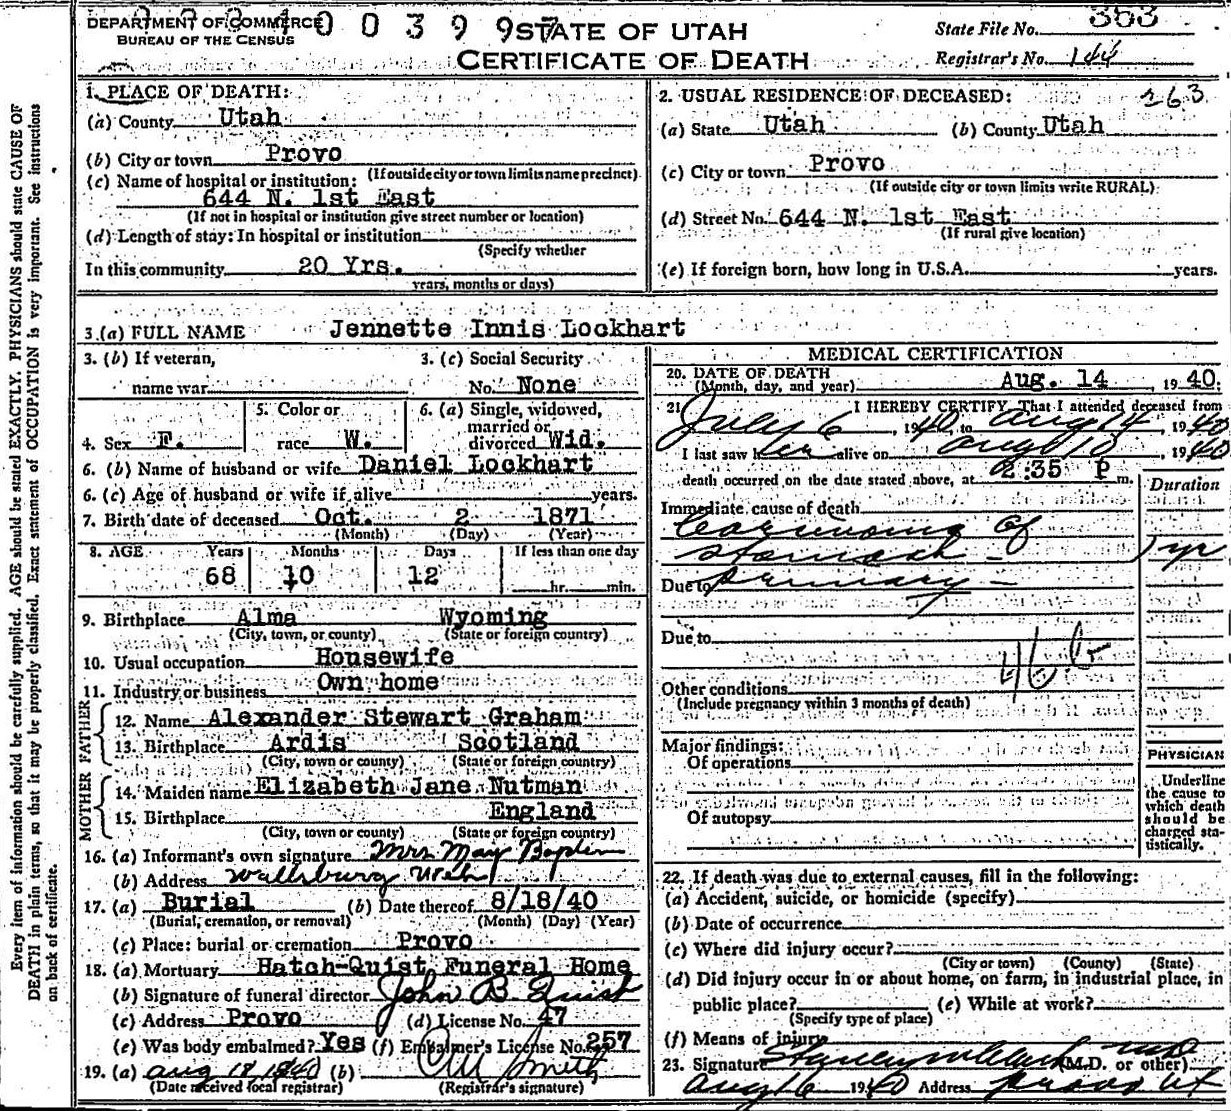 DEPARTMENT OF COMMERCE
BUREAU OF THE CENSUS
0 0 3 9 9 7
STATE OF UTAH
CERTIFICATE OF DEATH
State File No. 363
Registrar's No. 144
Every item of information should be carefully supplied. AGE should be stated EXACTLY. PHYSICIANS should state CAUSE OF
DEATH in plain terms, so that it may be properly classified. Exact statement of OCCUPATION is very important. See instructions
on back of certificate.
1. PLACE OF DEATH:
(a) County Utah
(b) City or town Provo
(If outside city or town limits name precinct)
(c) Name of hospital or institution:
644 N. 1st East
(If not in hospital or institution give street number or location)
(d) Length of stay: In hospital or institution
(Specify whether
In this community 20 Yrs.
years, months or days)
2. USUAL RESIDENCE OF DECEASED: 263
(a) State Utah (b) County Utah
(c) City or town Provo
(If outside city or town limits write RURAL)
(d) Street No. 644 N. 1st East
(If rural give location)
(e) If foreign born, how long in U.S.A. years.
3. (a) FULL NAME Jennette Innis Lockhart
3. (b) If veteran,
name war
3. (c) Social Security
No. None
4. Sex F.
5. Color or
race W.
6. (a) Single, widowed,
married or
divorced Wid.
6. (b) Name of husband or wife Daniel Lockhart
6. (c) Age of husband or wife if alive years.
7. Birth date of deceased Oct. 2 1871
(Month) (Day) (Year)
8. AGE Years Months Days If less than one day
68 10 12 hr. min.
9. Birthplace Alma Wyoming
(City, town, or county) (State or foreign country)
10. Usual occupation Housewife
11. Industry or business Own home
FATHER
12. Name Alexander Stewart Graham
13. Birthplace Ardis Scotland
(City, town or county) (State or foreign country)
MOTHER
14. Maiden name Elizabeth Jane Nutman
15. Birthplace England
(City, town or county) (State or foreign country)
16. (a) Informant's own signature Mrs May
(b) Address Wallsburg Utah
17. (a) Burial (b) Date thereof 8/18/40
(Burial, cremation, or removal) (Month) (Day) (Year)
(c) Place: burial or cremation Provo
18. (a) Mortuary Hatch-Quist Funeral Home
(b) Signature of funeral director John B. Quist
(c) Address Provo (d) License No. 47
(e) Was body embalmed? Yes (f) Embalmer's License No. 257
19. (a) Aug 18 1940 (b) Smith
(Date received local registrar) (Registrar's signature)
MEDICAL CERTIFICATION
20. DATE OF DEATH
(Month, day, and year) Aug. 14, 1940.
21. I HEREBY CERTIFY, That I attended deceased from
July 6, 1940, to Aug 14, 1940
I last saw her alive on Aug 10, 1940
death occurred on the date stated above, at 2:35 P m.
Duration
Immediate cause of death
Carcinoma of
stomach - 1 yr
Due to primary -
Due to
46 b
Other conditions
(Include pregnancy within 3 months of death)
Major findings:
Of operations
Of autopsy
PHYSICIAN
Underline
the cause to
which death
should be
charged sta-
tistically.
22. If death was due to external causes, fill in the following:
(a) Accident, suicide, or homicide (specify)
(b) Date of occurrence
(c) Where did injury occur?
(City or town) (County) (State)
(d) Did injury occur in or about home, on farm, in industrial place, in
public place? (e) While at work?
(Specify type of place)
(f) Means of injury
23. Signature Stanley M Clark MD (M.D. or other)
Aug 16 1940 Address Provo Ut